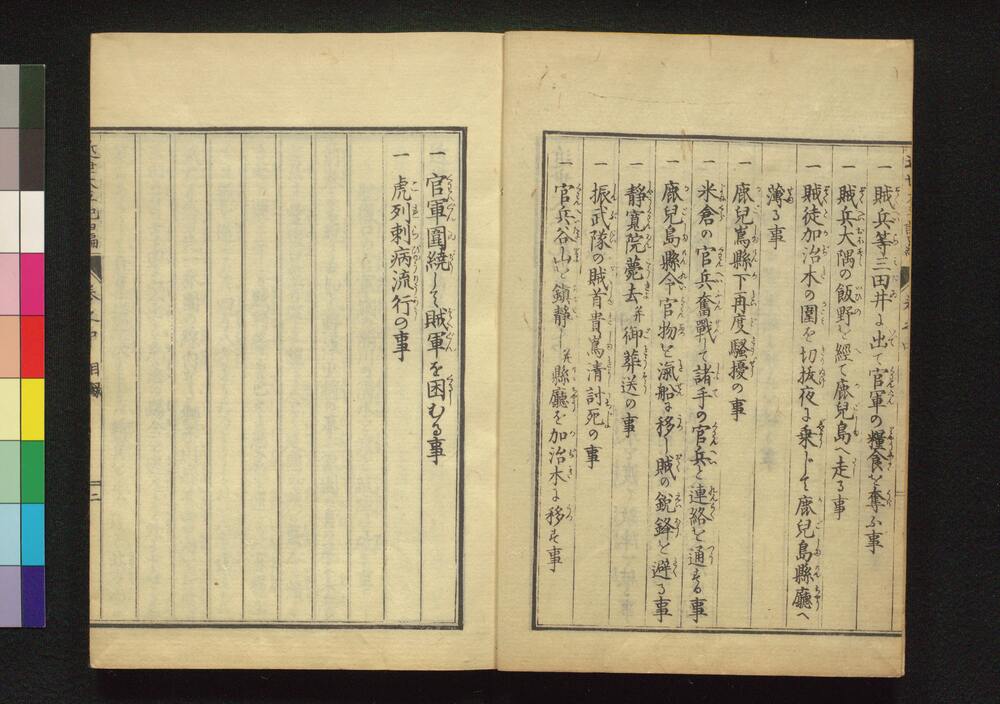 一 賊兵等三田井に出て官軍の糧食を奪ふ事
一 賊兵大隅の飯野を經て鹿兒島へ走る事
一 賊徒加治木の圍を切抜夜に乗じて鹿兒島縣廳へ
薄る事
一 鹿兒嶌縣下再度騷擾の事
一 米倉の官兵奮戰して諸手の官兵と連絡を通ずる事
一 鹿兒島縣令官物を滊船に移し賊の銳鋒を避る事
一 静寬院薨去并御葬送の事
一 振武隊の賊首貴嶌清討死の事
一 官兵谷山を鎮静し并縣廳を加治木に移す事
一 官軍圍繞して賊軍を困むる事
一 虎列剌病流行の事